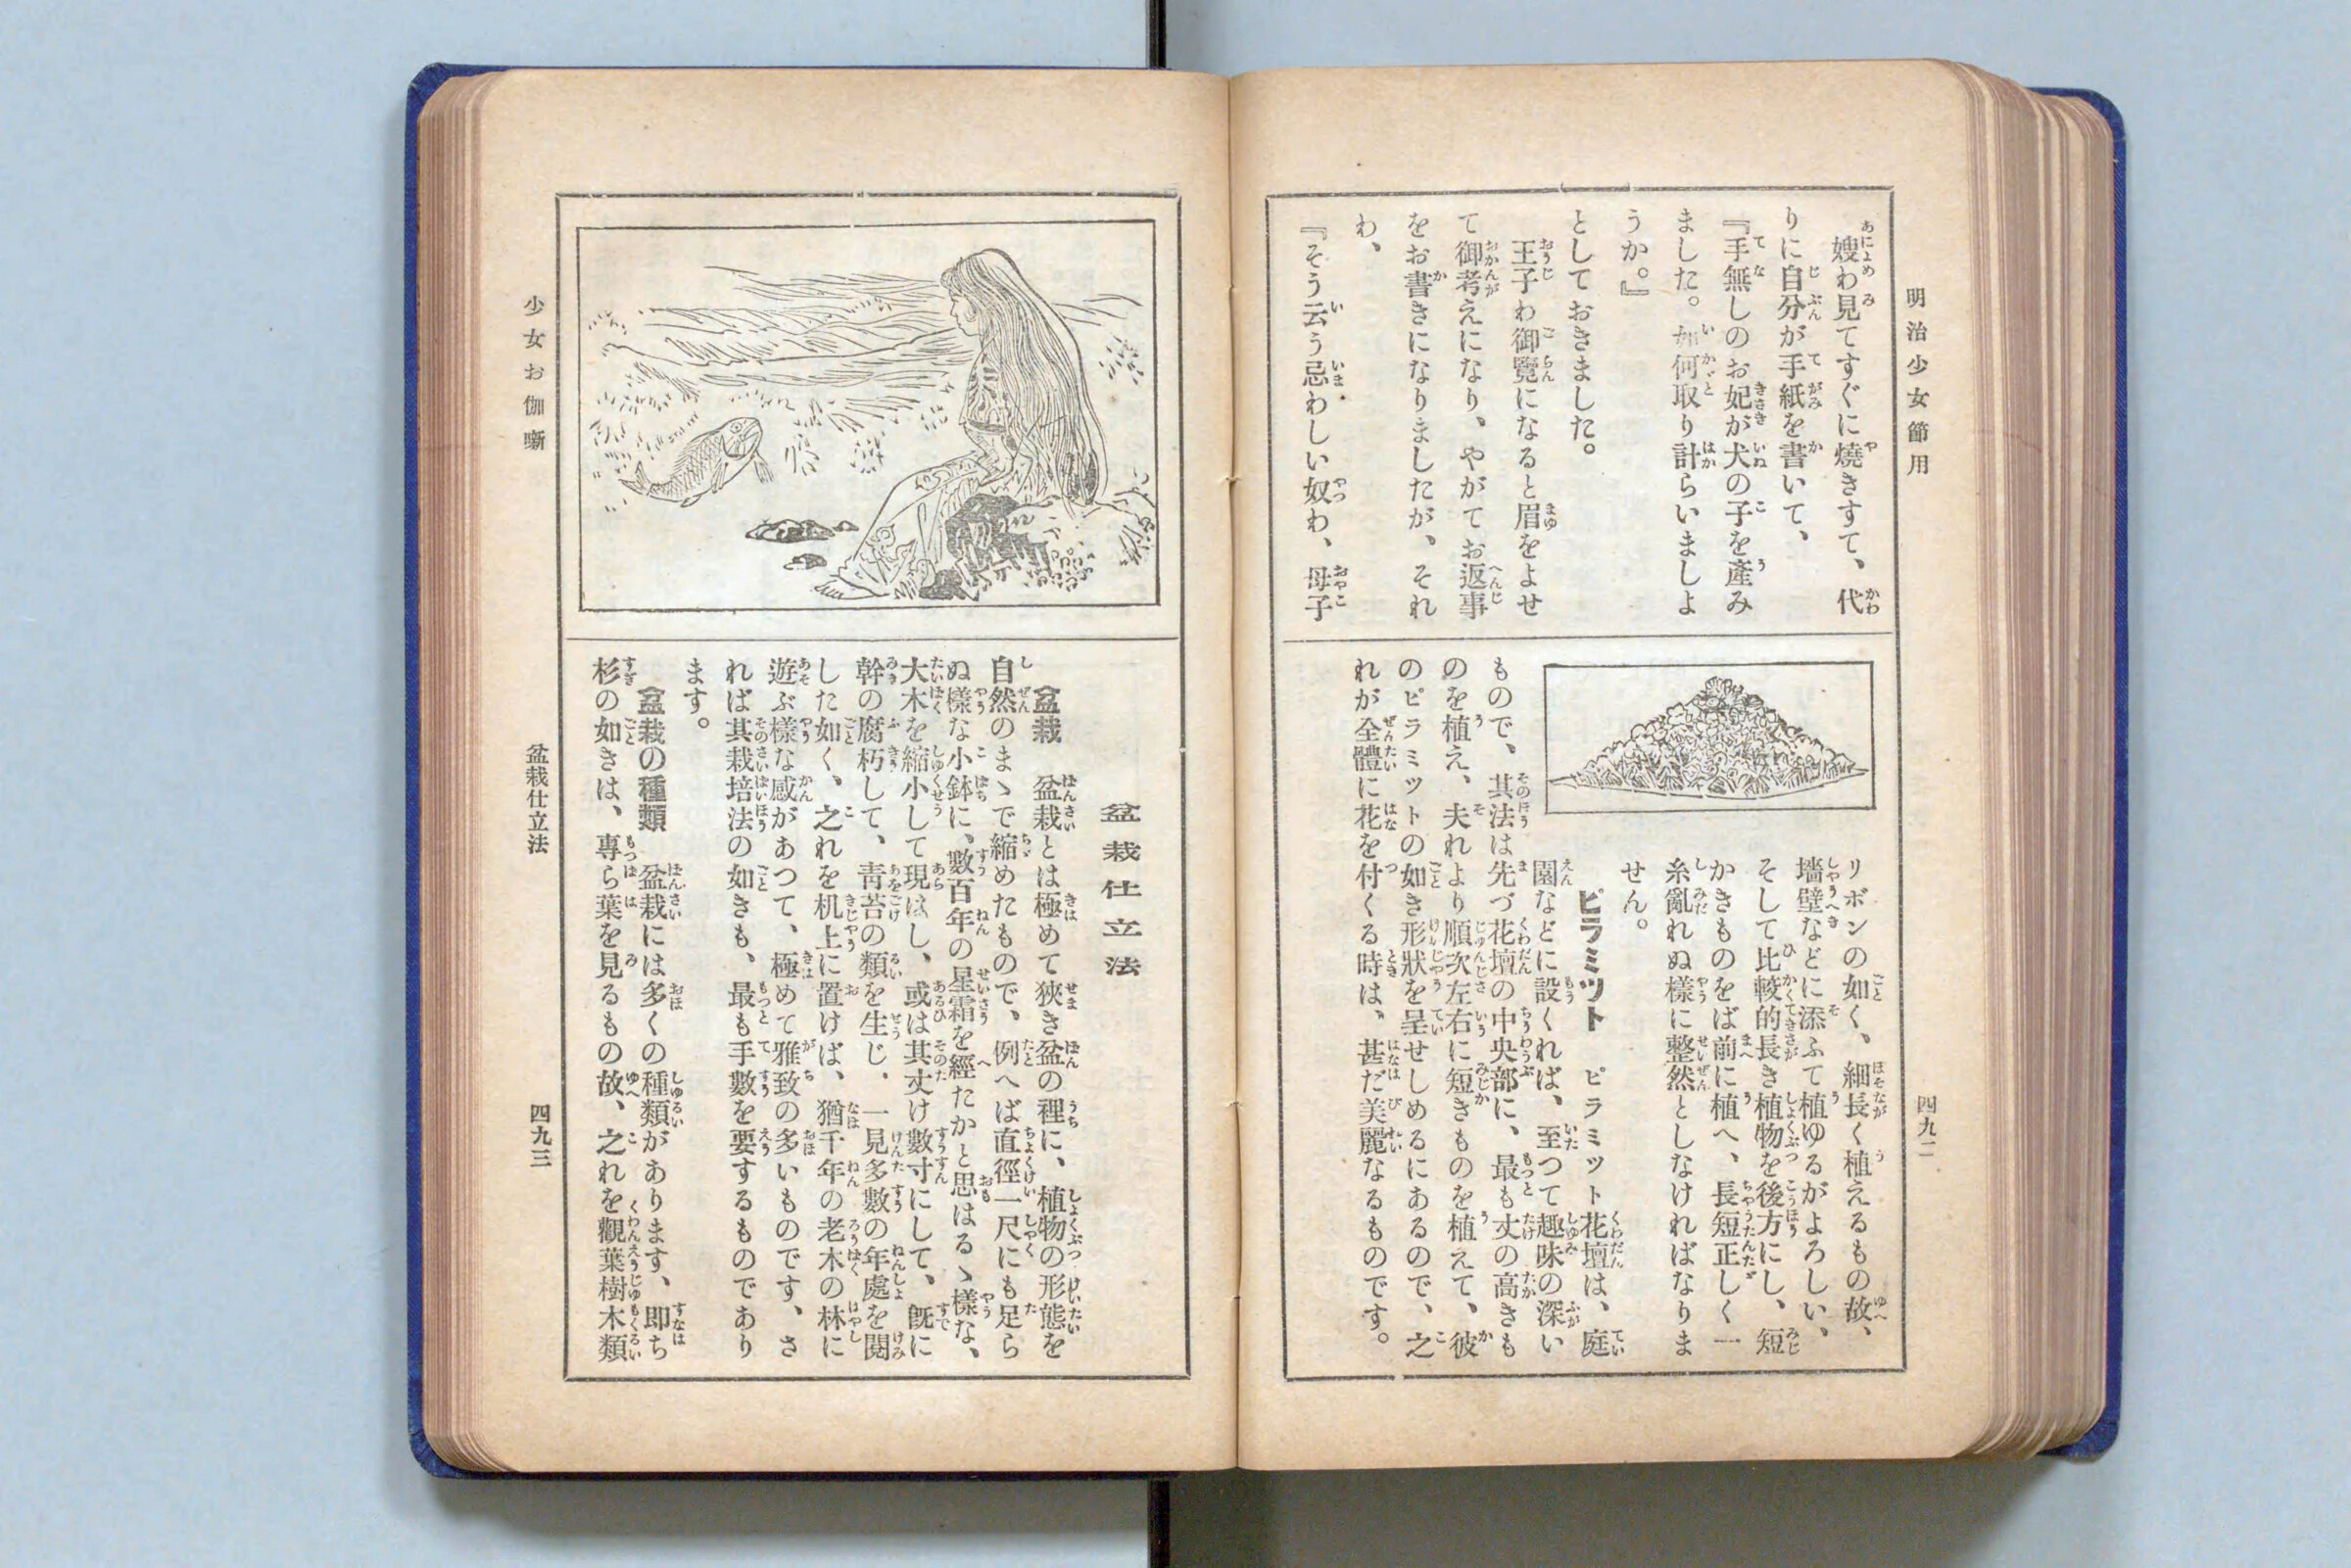 明治少女節用
嫂わ見てすぐに燒きすて、代
りに自分が手紙を書いて、
『手無しのお妃が犬の子を產み
ました。如何取り計らいましよ
うか。』
としておきました。
王子わ御覽になると眉をよせ
て御考えになり、やがてお返事
をお書きになりましたが、それ
わ、
『そう云う忌わしい奴わ、母子
リボンの如く、細長く植えるもの故、
墻壁などに添ふて植ゆるがよろしい、
そして比較的長き植物を後方にし、短
かきものをば前に植へ、長短正しく一
糸亂れぬ樣に整然としなければなりま
せん。
ピラミツト ピラミット花壇は、庭
園などに設くれば、至つて趣味の深い
もので、其法は先づ花壇の中央部に、最も丈の高きも
のを植え、夫れより順次左右に短きものを植えて、彼
のピラミットの如き形狀を呈せしめるにあるので、之
れが全體に花を付くる時は、甚だ美麗なるものです。
四九二
少女お伽噺
盆栽仕立法
盆栽 盆栽とは極めて狹き盆の裡に、植物の形態を
自然のまゝで縮めたもので、例へば直徑一尺にも足ら
ぬ樣な小鉢に、數百年の星霜を經たかと思はるゝ樣な、
大木を縮小して現はし、或は其丈け數寸にして、既に
幹の腐朽して、靑苔の類を生じ、一見多數の年處を閲
した如く、之れを机上に置けば、猶千年の老木の林に
遊ぶ樣な感があつて、極めて雅致の多いものです、さ
れば其栽培法の如きも、最も手數を要するものであり
ます。
盆栽の種類 盆栽には多くの種類があります、即ち
杉の如きは、專ら葉を見るもの故、之れを觀葉樹木類
盆栽仕立法
四九三